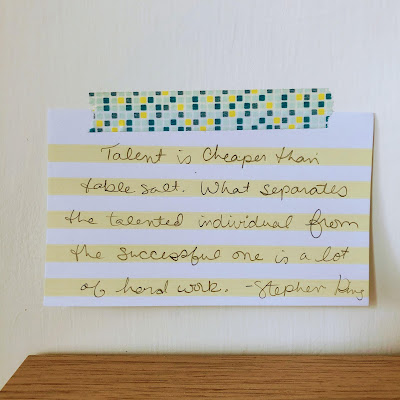 Talent is cheaper than
table salt. What separates
the talented individual from
the successful one is a lot
of hard work. -Stephen King